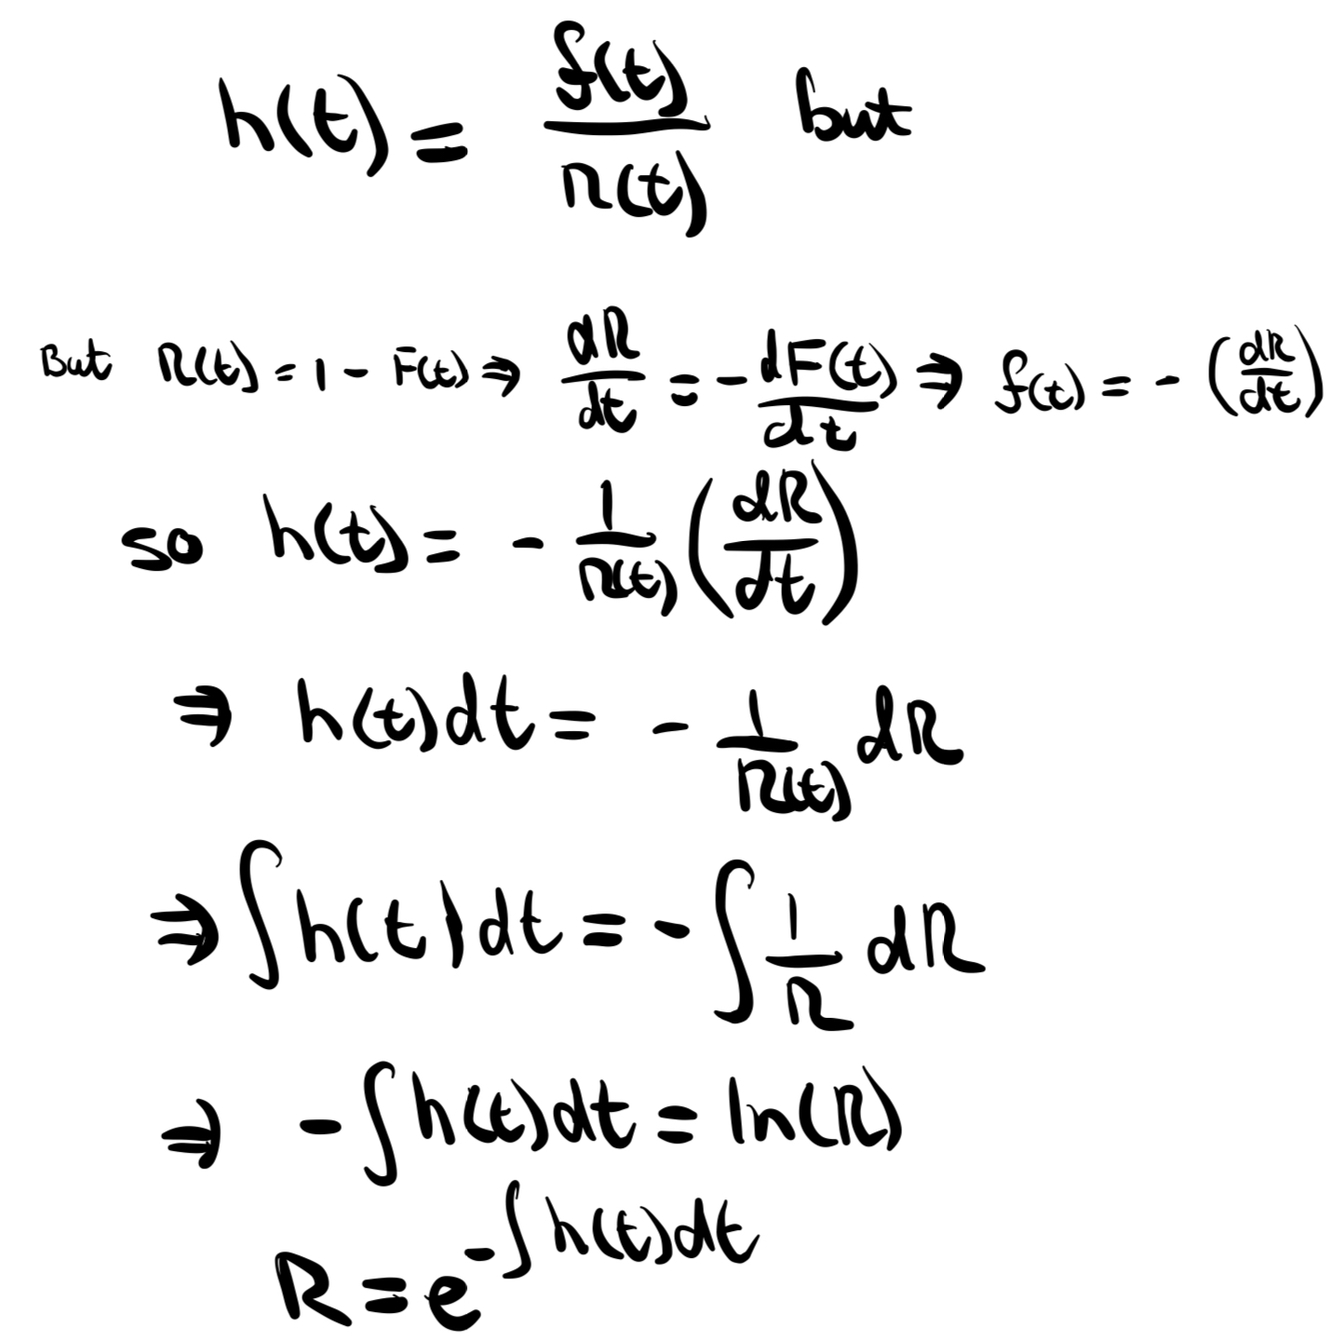 h(t) = f(t)/R(t) but
But R(t) = 1 - F(t) ⇒ dR/dt = - dF(t)/dt ⇒ f(t) = - (dR/dt)
so h(t) = - 1/R(t) (dR/dt)
⇒ h(t)dt = - 1/R(t) dR
⇒ ∫h(t)dt = - ∫ 1/R dR
⇒ - ∫h(t)dt = ln(R)
R = e^-∫h(t)dt